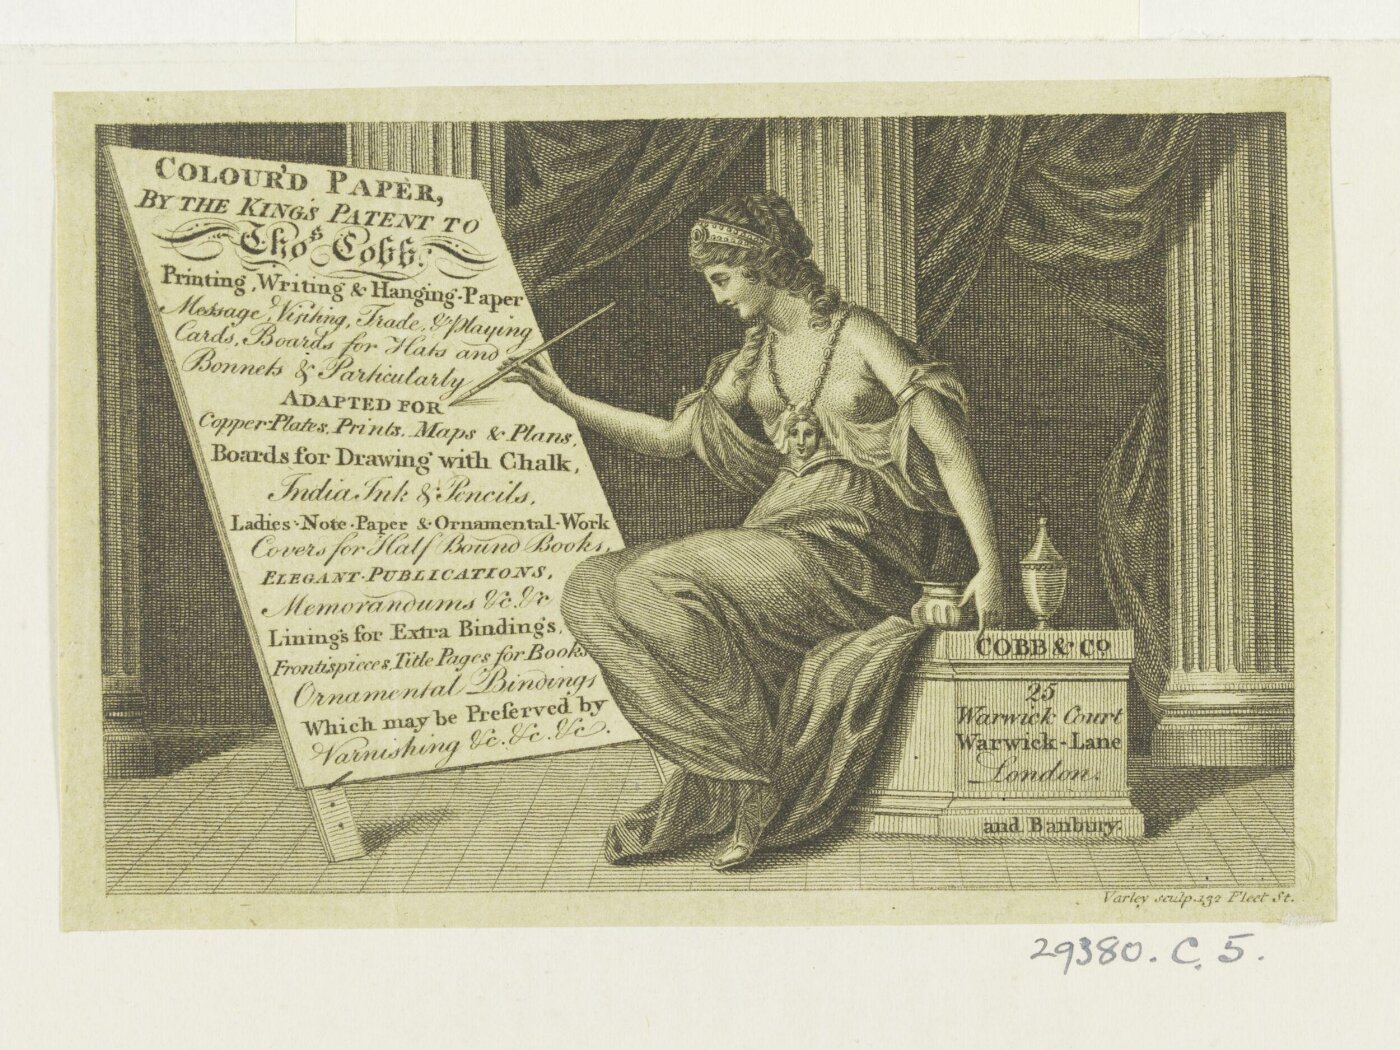 COLOUR'D PAPER,
BY THE KING'S PATENT TO
Thos. Cobb.
Printing, Writing & Hanging-Paper
Message, Visiting, Trade, & Playing
Cards, Boards for Hats and
Bonnets & Particularly
ADAPTED FOR
Copper Plates, Prints, Maps & Plans,
Boards for Drawing with Chalk,
India Ink & Pencils,
Ladies-Note-Paper & Ornamental-Work
Covers for Half Bound Books,
ELEGANT-PUBLICATIONS,
Memorandums &c. &c
Linings for Extra Bindings,
Frontispieces, Title Pages for Books
Ornamental Bindings
Which may be Preſerved by
Varnishing &c. &c. &c.
COBB & Co
25
Warwick Court
Warwick-Lane
London.
and Banbury.
Varley sculp. 132 Fleet St.
29380. C. 5.